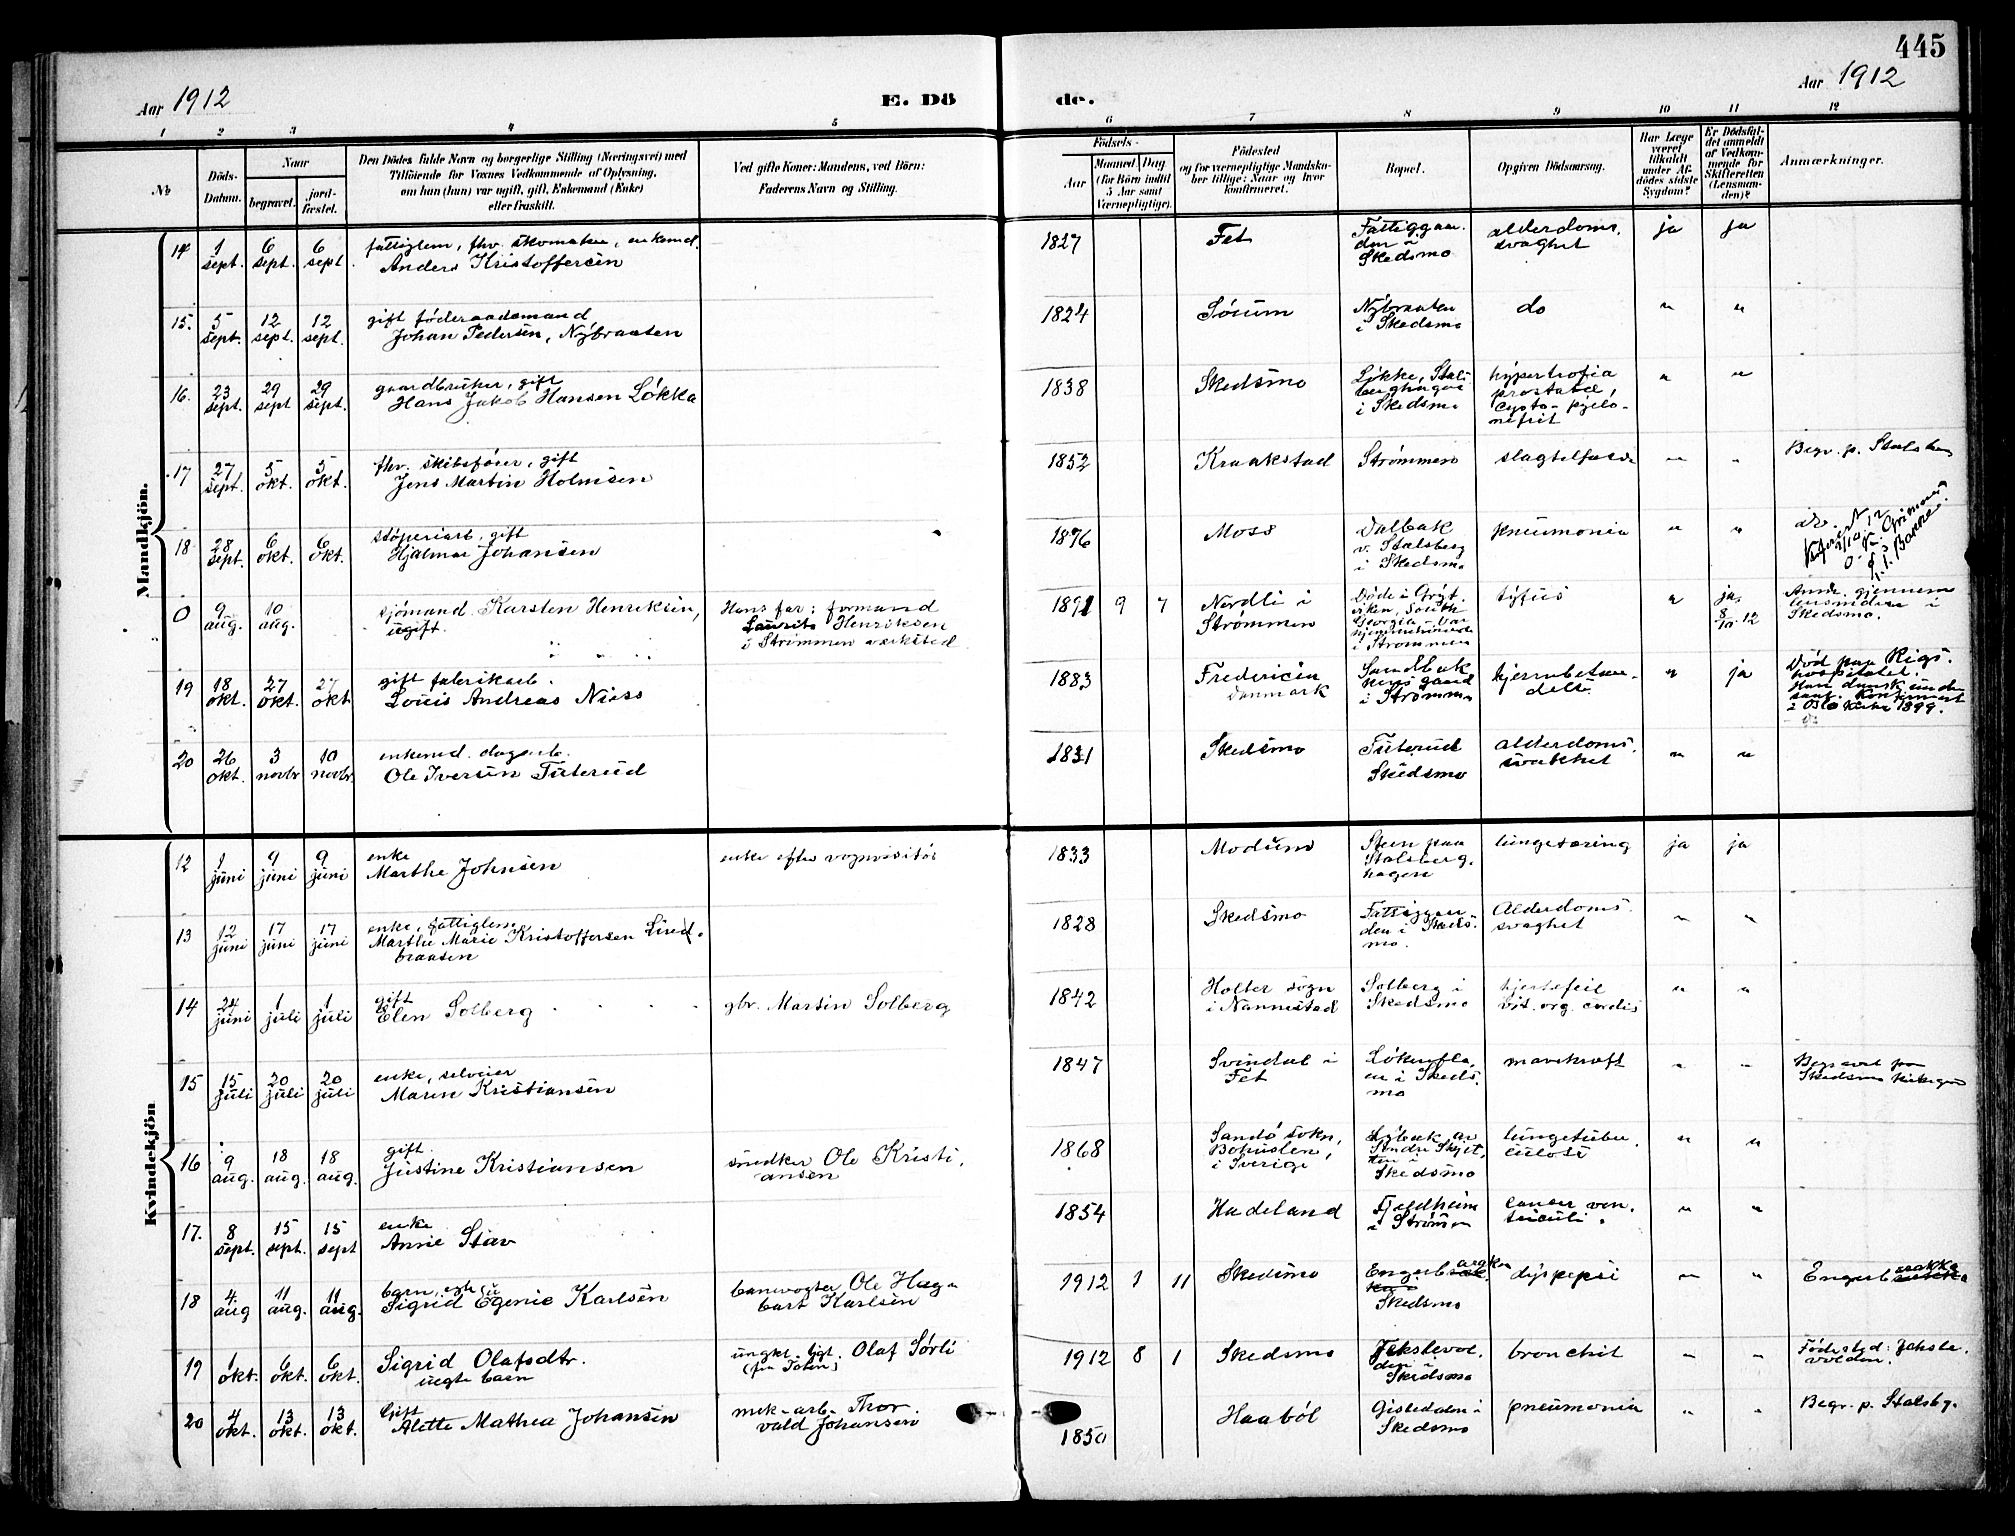 445
Aar 1912
E. Dö
de.
Aar 1912
1 2 3 4 5 6 7 8 9 10 11 12
No
Döds-
Datum.
Naar
begravet.
jord-
fæstet.
Den Dödes fulde Navn og borgerlige Stilling (Næringsvei) med
Tilföiende for Voxnes Vedkommende af Oplysning,
om han (hun) var ugift, gift, Enkemand (Enke)
eller fraskilt.
Ved gifte Koner: Mandens, ved Börn:
Faderens Navn og Stilling.
Födsels-
Aar
Maaned
Dag
(for Börn indtil
5 Aar samt
Værnepligtige).
Födested
og for værnepligtige Mandska-
ber tillige: Naar og hvor
konfirmeret.
Bopæl.
Opgiven Dödsaarsag.
Har Læge
været
tilkaldt
under Af-
dödes sidste
Sygdom?
Er Dödsfal-
det anmeldt
af Vedkom-
mende for
Skifteretten
(Lensman-
den)?
Anmærkninger.
Mandkjön.
14
1 sept.
6 sept.
6 sept.
fattiglem, fhv. skomaker, enkemd.
Anders Kristoffersen
1827
Fet
Fattiggaar-
den i
Skedsmo
alderdoms.
svaghet
ja
ja
15.
5 sept.
12 sept.
12 sept.
gift föderaadsmand
Johan Pedersen, Nybraaten
1824
Sörum
Nybraaten
i Skedsmo
do
"
"
16.
23 sept.
29 sept
29 sept.
gaardbruker, gift
Hans Jakob Hansen Løkka
1838
Skedsmo
Løkke, Stals
berghagen
i Skedsmo
hypertrofia
prostatae,
cysto- pyelo-
nefrit
"
"
17
27 sept.
5 okt.
5 okt.
fhv. skibsfører, gift
Jens Martin Holmsen
1852
Kraakstad
Strømmen
"
"
Begr. p. Stalsberg
18
28 sept.
6 okt.
6 okt.
støperiarb. gift
Hjalmar Johansen
1876
Moss
Dalbak
v. Stalsberg
i Skedsmo
pneumonia
"
"
do.
0
9 aug.
10 aug.
sjömand Karsten Henriksen,
ugift.
Hans far: formand
Laurits Henriksen
i Strömmen værksted.
1891
9
7
Nordli i
Strømmen
Døde i Gryt-
viken, South
Georgia - Var
hjemmehørende
i Strømmen
tyfus
"
ja,
8/10.12
Anm. gjennem
lensmannen i
Skedsmo.
19
18 okt.
27 okt.
27 okt
gift fabrikarb.
Louis Andreas Niess
1883
Fredericia
Danmark
i Strømmen
hjernebetæn-
delse
"
ja
Död paa Rigs.
hospitalet.
Han dansk under
saat. Konfirmert
i Oslo kirke 1899.
20
26 okt.
3 novbr
10 novbr.
enkemd. dagarb.
Ole Iversen Tuterud
1831
Skedsmo
Tuterud
Skedsmo
alderdoms.
svakhet
"
"
Kvindekjön
12
1 juni
9 juni
9 juni
enke
Marthe Johnsen
enke efter vognvisitör
1833
Modum
Steen paa
Stalsberg.
hagen
lungetæring
ja
ja
13
12 juni
17 juni
17 juni
enke, fattiglem
Marthe Marie Kristoffersen Lind-
braaten
1828
Skedsmo
Fattiggaar
den i Skeds-
mo.
Alderdoms.
svaghet
"
"
14
24 juni
1 juli
1 juli
gift
Elen Solberg
gbr. Martin Solberg
1842
Holter sogn
i Nannestad
Solberg i
Skedsmo
hjertefeil
vit. org. cordis
"
"
15
15 juli
20 juli
20 juli
enke, selveier
Maren Kristiansen
1847
Svindal i
Fet
en i Skeds.
mo
mavekræft
"
"
Begravet paa
Skedsmo kirkegd
16
9 aug.
18 aug.
18 aug.
gift.
Justine Kristiansen
snedker Ole Kristi.
ansen
1868
Sandö sokn,
Bohuslen,
i Sverige
Lybæk av
Søndre Skjet.
ten i
Skedsmo
lungetuber.
culose
"
"
17.
8 sept.
15 sept.
15 sept
enke
Annie Stav
1854
Hadeland
Fjeldheim
i Strömmen
cancer ven.
triculi.
"
"
18
4 aug
11 aug.
11 aug.
barn, egte
Sigrid Egenie Karlsen
banevogter Ole Hag-
bart Karlsen
1912
1
11
Skedsmo
Skedsmo
dyspepsi
"
"
Engerb
19
1 okt.
6 okt.
6 okt.
Sigrid Olafsdtr.
uegte barn
ungkt. Olaf Sørli
1912
8
1
Skedsmo
Jekslevol.
den i
Skedsmo
bronchit
"
"
Födested: Jeksle.
volden.
20
4 okt.
13 okt.
13 okt.
Gift
Alette Mathea Johansen
mek-arb- Thor.
vald Johansen
1850
Haaböl
Gisledalen i
Skedsmo
pneumonia
"
"
Begr. p. Stalsbg.